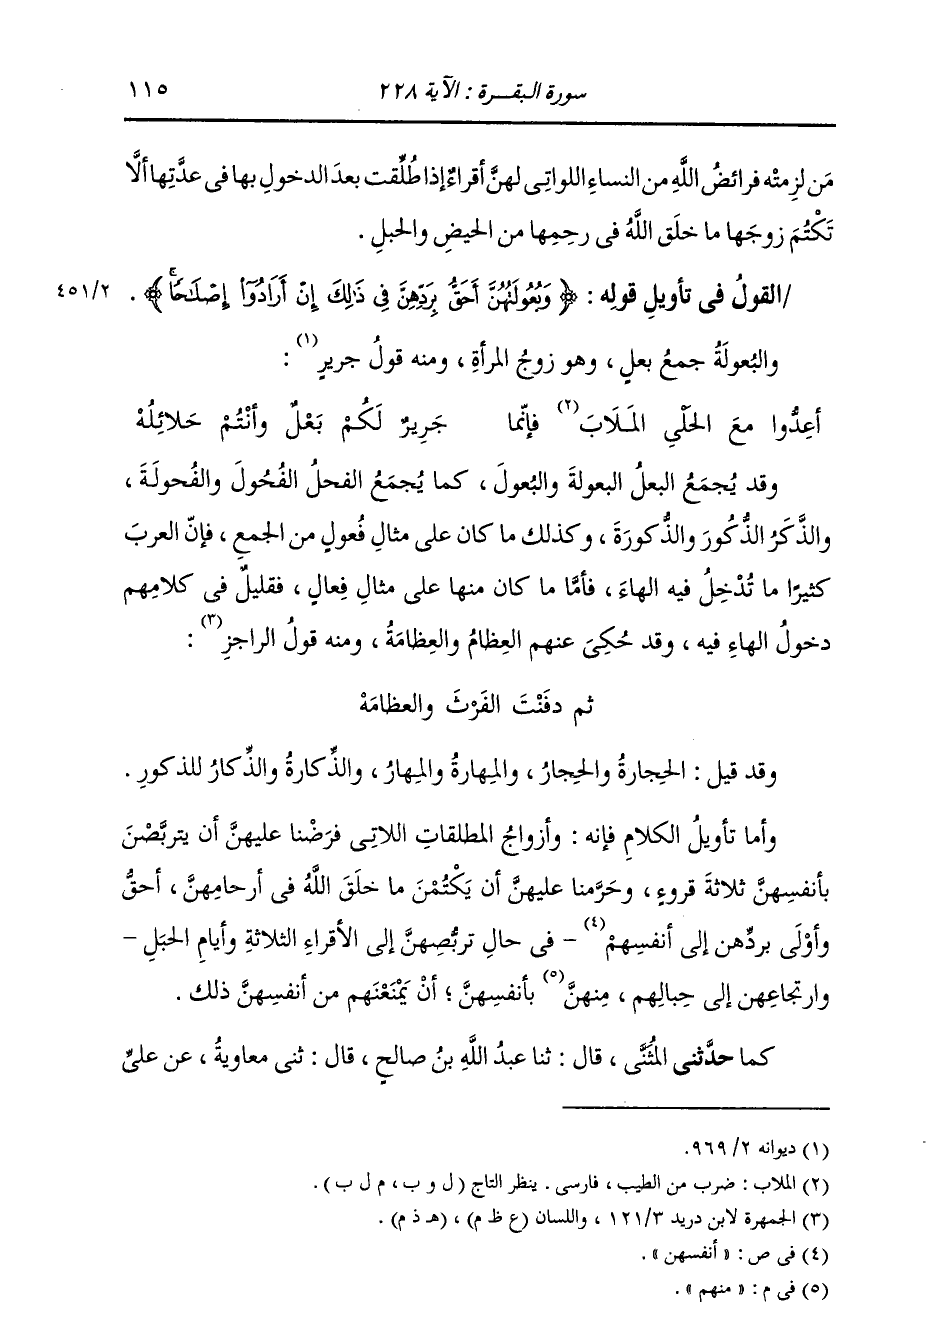 سورة البقـرة : الآية ٢٢٨
١١٥
مَن لزِمتْه فرائضُ اللَّهِ من النساءِ اللواتِى لهنَّ أقراءٌ إذا طُلِّقت بعدَ الدخولِ بها فى عدَّتِها ألَّا
تَكْتُمَ زوجَها ما خلَق اللَّهُ فى رحِمِها من الحيضِ والحبلِ .
/القولُ فى تأويلِ قولِه : ﴿ وَبُعُولَتُهُنَّ أَحَقُّ بِرَدِّهِنَّ فِي ذَٰلِكَ إِنْ أَرَادُوٓاْ إِصْلَٰحًاۚ ﴾ .
٤٥١/٢
والبُعولَةُ جمعُ بعلٍ ، وهو زوجُ المرأةِ ، ومنه قولُ جريرٍ(١) :
أعِدُّوا معَ الحَلْىِ المَـلَابَ(٢) فإنّما جَرِيرٌ لَكُمْ بَعْلٌ وأنْتُمْ حَلائِلُهْ
وقد يُجمَعُ البعلُ البعولةَ والبُعولَ ، كما يُجمَعُ الفحلُ الفُحُولَ والفُحولَةَ ،
والذَّكَرُ الذُّكُورَ والذُّكورَةَ ، وكذلك ما كان على مثالِ فُعولٍ من الجمعِ ، فإنّ العربَ
كثيرًا ما تُدْخِلُ فيه الهاءَ ، فأمَّا ما كان منها على مثالِ فِعالٍ ، فقليلٌ فى كلامِهم
دخولُ الهاءِ فيه ، وقد حُكِىَ عنهم العِظامُ والعِظامَةُ ، ومنه قولُ الراجزِ(٣) :
ثم دفَنْتَ الفَرْثَ والعظامَهْ
وقد قيل : الحِجارةُ والحِجارُ ، والمِهارةُ والمِهارُ ، والذِّكارةُ والذِّكارُ للذكورِ .
وأما تأويلُ الكلامِ فإنه : وأزواجُ المطلقاتِ اللاتِى فرَضْنا عليهنَّ أن يتربَّصْنَ
بأنفسِهنَّ ثلاثةَ قروءٍ ، وحَرَّمنا عليهنَّ أن يَكْتُمْنَ ما خلَقَ اللَّهُ فى أرحامِهنَّ ، أحقُّ
وأوْلَى بردِّهن إلى أنفسِهمْ(٤) – فى حالِ تربُّصِهنَّ إلى الأقراءِ الثلاثةِ وأيامِ الحَبَلِ –
وارتجاعِهن إلى حِبالِهم ، مِنهنَّ(٥) بأنفسِهنَّ ؛ أنْ يَمْنَعْنَهم من أنفسِهنَّ ذلك .
كما حدَّثنى المُثَنَّى ، قال : ثنا عبدُ اللَّهِ بنُ صالحٍ ، قال : ثنى معاويةُ ، عن علىٍّ
(١) ديوانه ٢/ ٩٦٩.
(٢) الملاب : ضرب من الطيب ، فارسى . ينظر التاج ( ل و ب ، م ل ب ) .
(٣) الجمهرة لابن دريد ١٢١/٣ ، واللسان (ع ظ م) ، (هـ ذ م) .
(٤) فى ص : « أنفسهن » .
(٥) فى م : « منهم » .